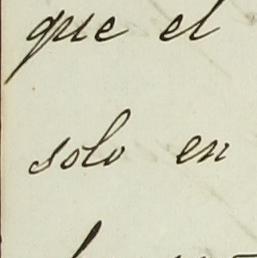 que el
solo en